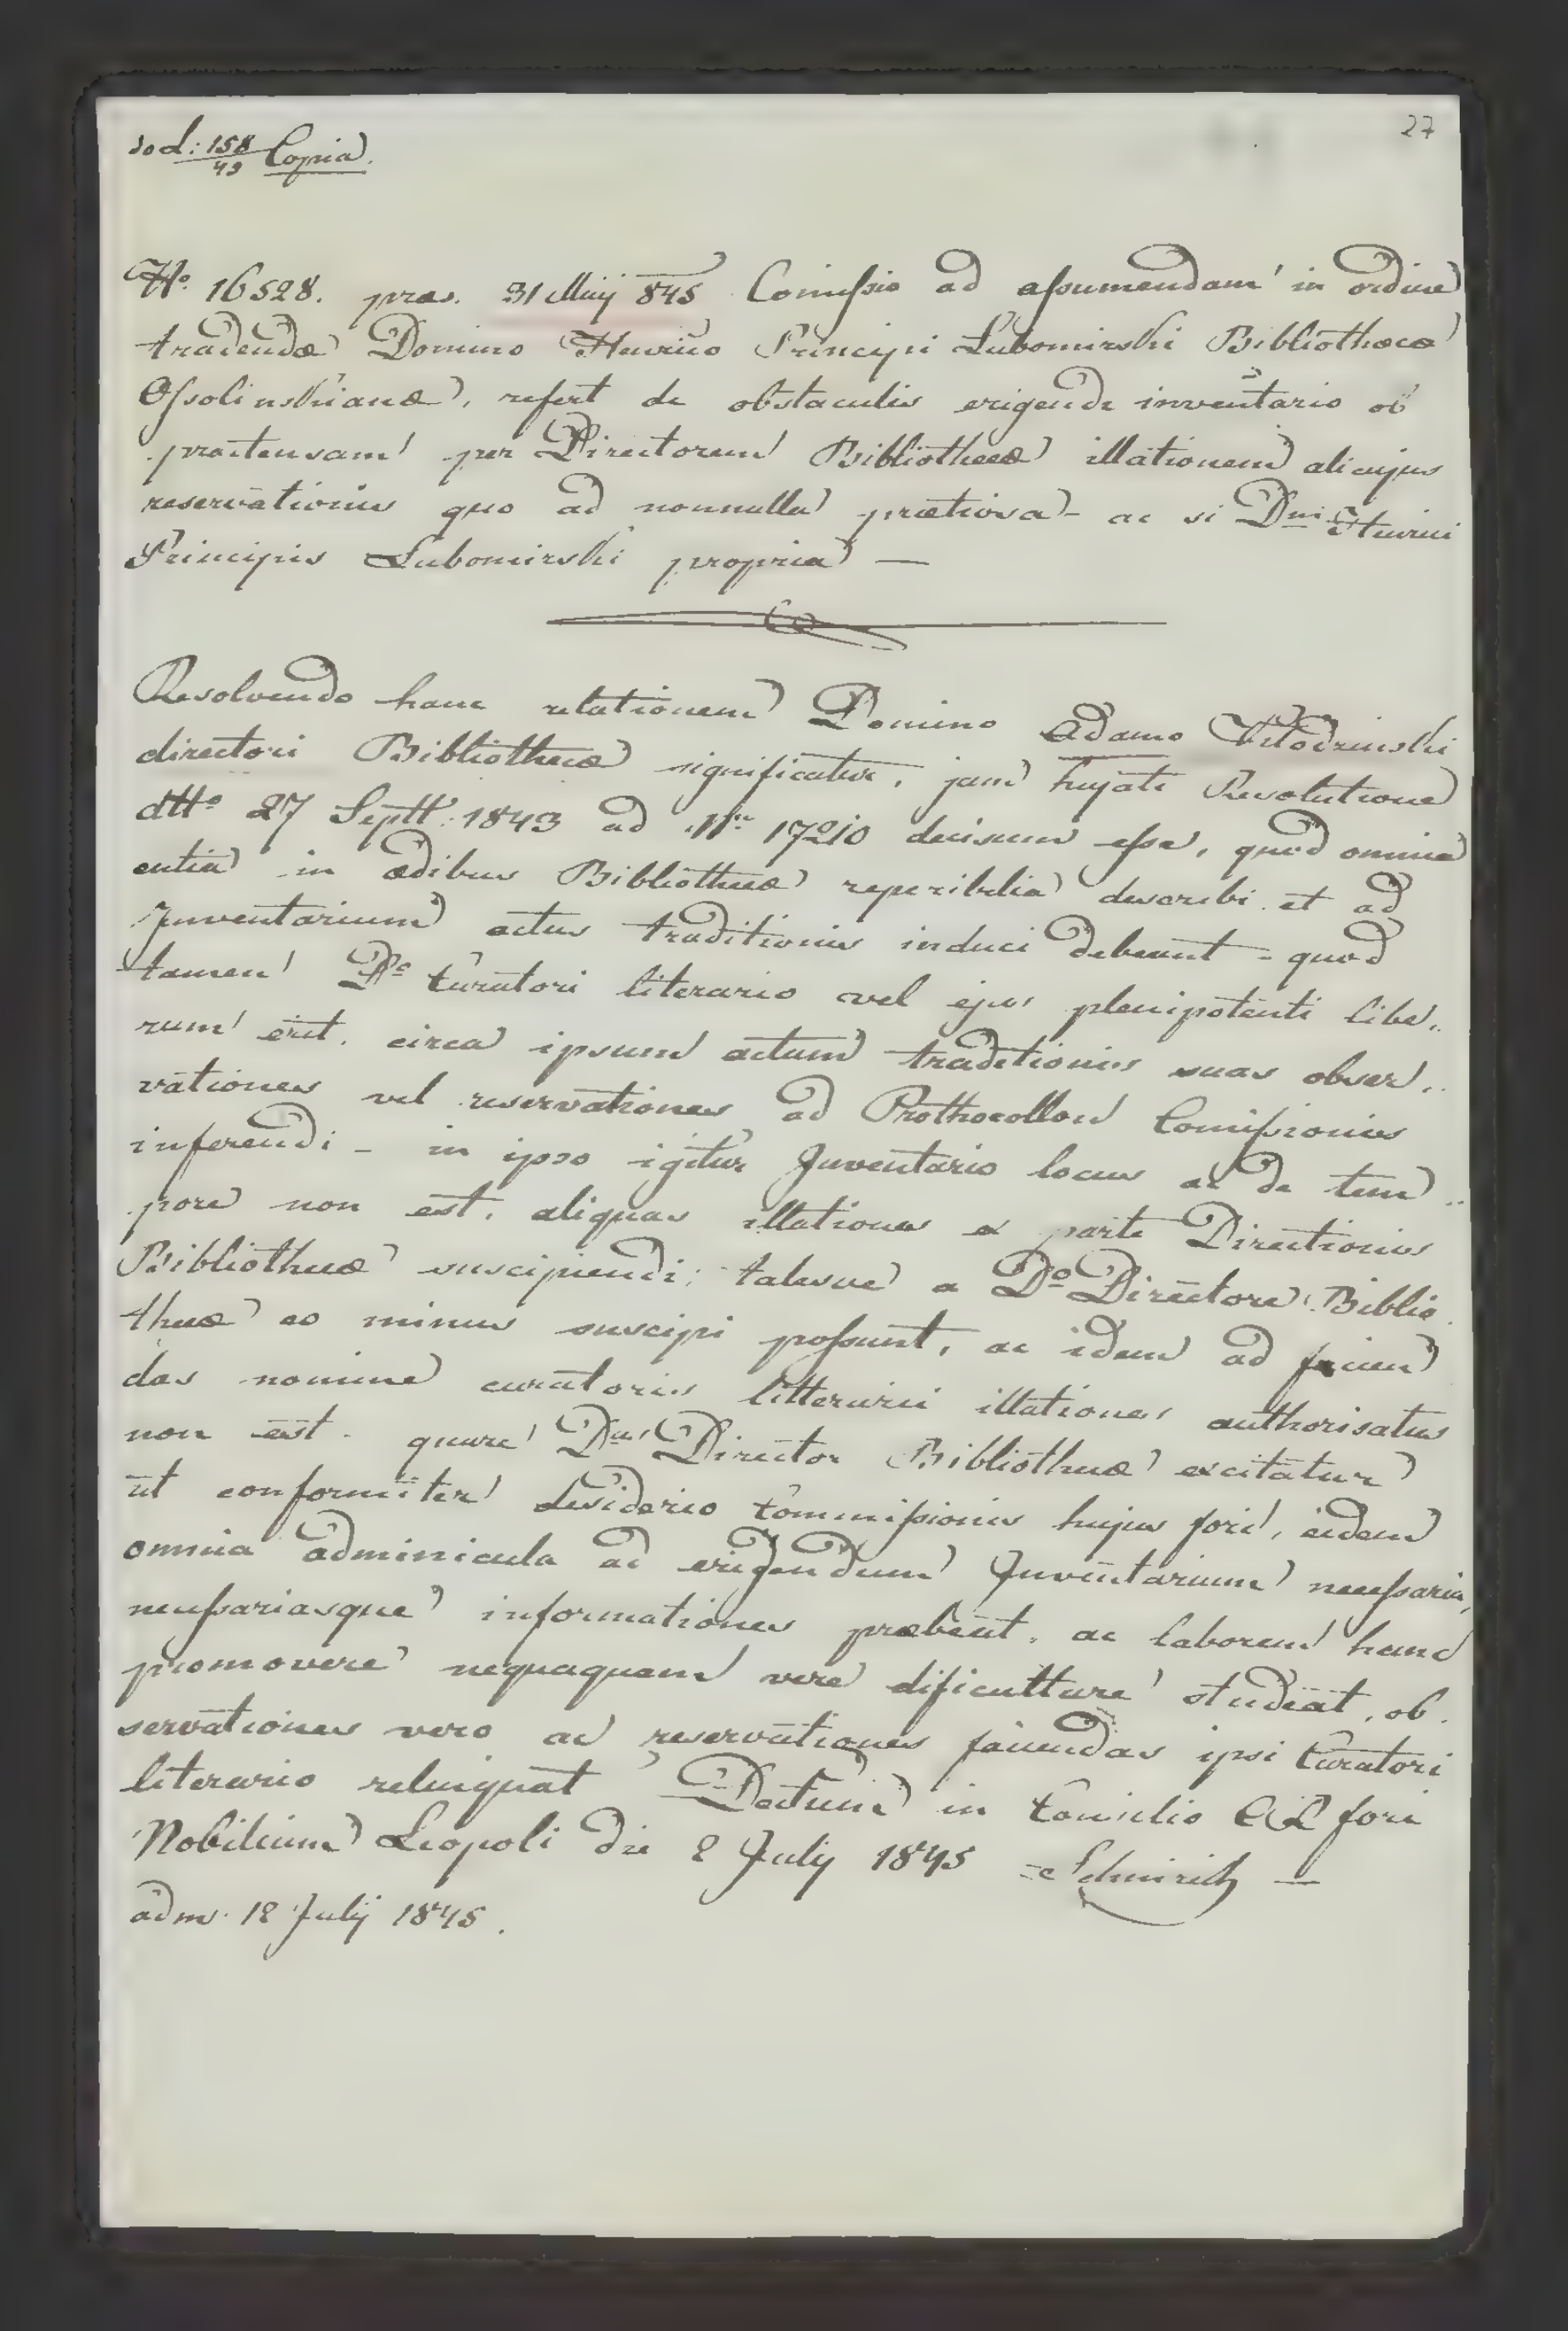 ad: 158/43 Copia.
27
No. 16528. praes. 31 Maij 845 Comissio ad assumendam in ordine
tradendae Domino Henrico Principi Lubomirski Bibliothecae
Ossolinskianae, refert de obstaculis erigende inventario ob
praetensam per Directorem Bibliothecae illationem alicujus
reservationis quo ad nonnulla praetiosa - ac si Dni Henrici
Principis Lubomirski propria —
Resolvendo hanc relationem Domino Adamo Kłodzinski
directori Bibliothecae significatur, jam hujate Resolutione
dtto 27 Septt: 1843 ad Nr. 17210 decisum esse, quod omnia
entia in aedibus Bibliothecae reperibilia describi et ad
Inventarium actus traditionis induci debeant - quod
tamen Do Curatori literario vel ejus plenipotenti libe„
rum erit, circa ipsum actum traditionis suas obser„
vationes vel reservationes ad Prothocollon Comissionis
inferendi - in ipso igitur Inventario locus ac de tem„
pore non est, aliquas illationes ex parte Directionis
Bibliothecae suscipiendi; talesve a Do Directore Biblio
thecae eo minus suscipi possunt, ac idem ad facien
das nomine curatoris litterarii illationes authorisatus
non est - quare Dus Director Bibliothecae excitatur
ut conformiter desiderio Commissionis hujus fori, eidem
omnia adminicula ad erigendum Inventarium necessaria,
necessariasque informationes praebeat, ac laborem hanc
promovere nequaquam vere dificultare studeat, ob„
servationes vero ac reservationes faciendas ipsi Curatori
literario relinquat Datum in Consilio CR fori
Nobilium Leopoli die 2 July 1845
adm. 12 Julij 1845.